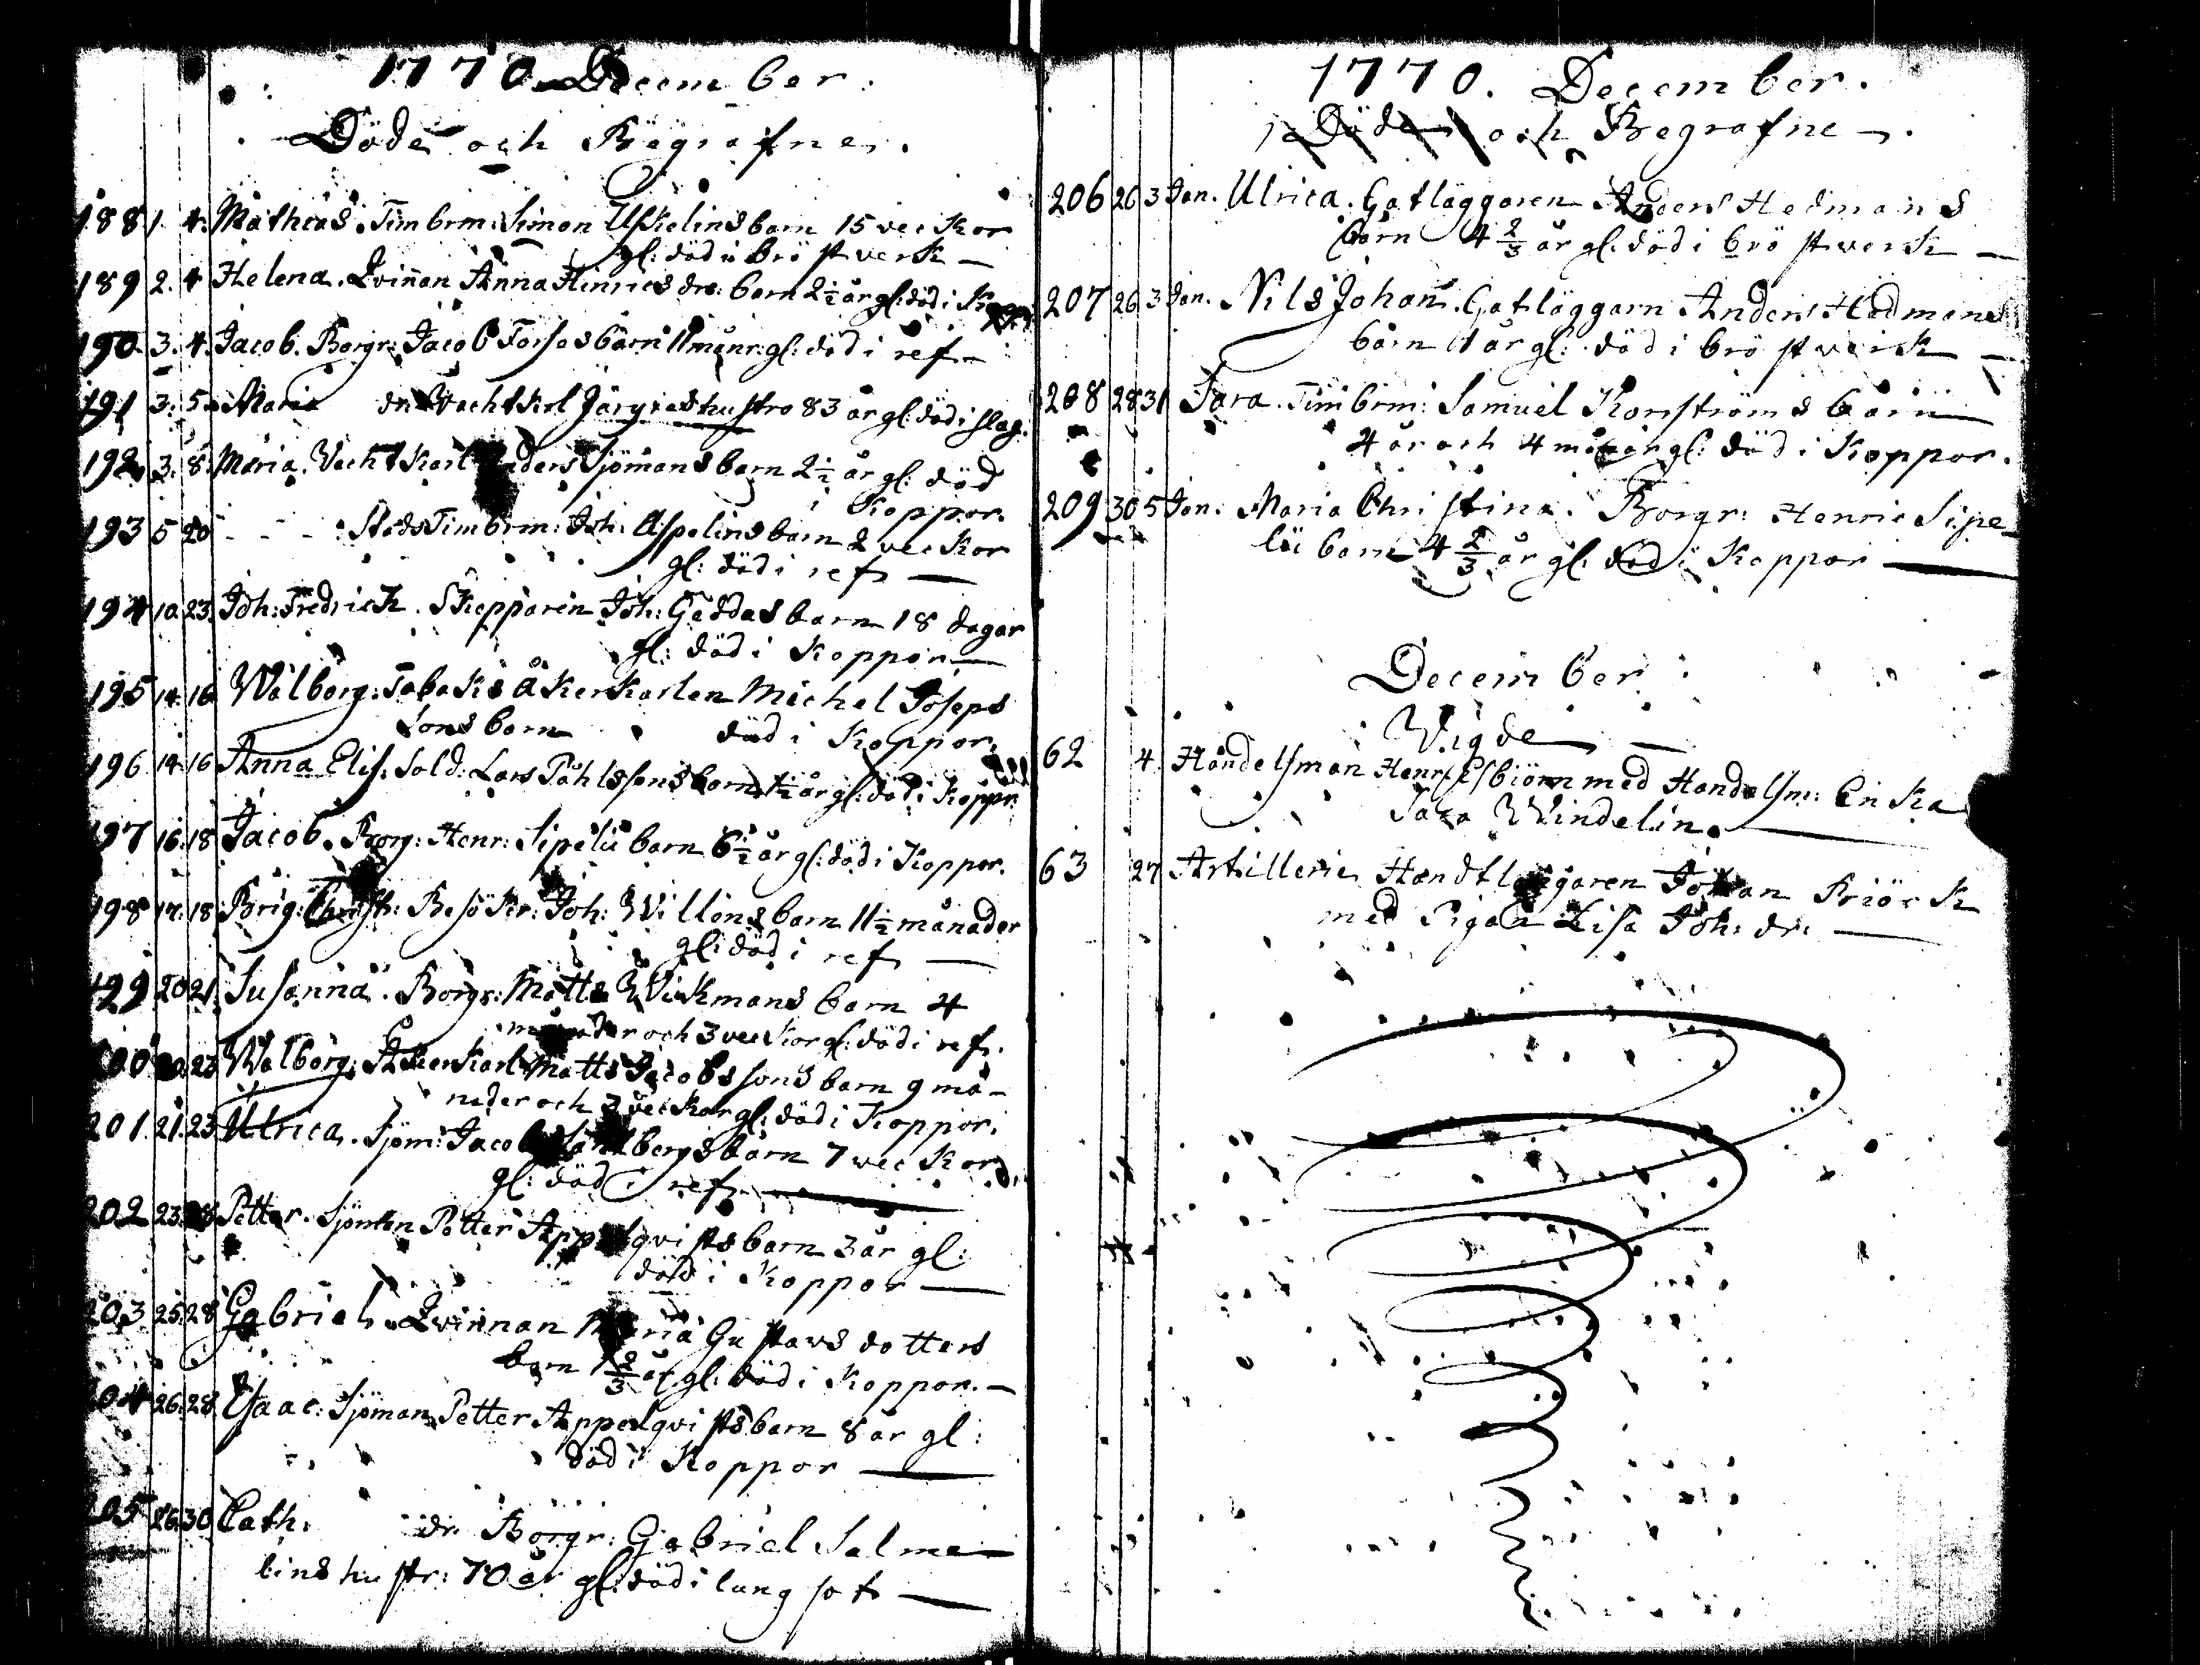 1770 December.
Döde och Begrafne.
188 1. 4. Mathias. Timbrm: Simon Uskelins barn 15 veckor
gl: död i bröstverk —
189 2. 4 Helena. Qvinnan Anna Hinricsdrs: barn 2½ år gl: död i
190 3. 4. Jacob. Borgr: Jacob Forsos barn 11 månr: gl: död i ref —
191 3. 5 Maria dr Vachtkrl hustro 83 år gl: död i slag.
192 3. 8. Maria. Vachtkarl Anders Sjömans barn 2½ år gl: död
i Koppor.
193 5 20 - - - Stads Timbrm: Joh: Aspelins barn 2 veckor
gl: död i ref —
194 10. 23. Joh: Fredrick. Skepparen Joh: Geddas barn 18 dagar
gl: död i Koppor —
195 14. 16 Walborg: Tobaks åkerkarlen Michel Joseps
sons barn död i Koppor.
196 14. 16 Anna Elis. Sold: Lars Påhlssons barn 1½ år gl: död i Koppr.
197 16. 18 Jacob. Borg: Henr: Sipelii barn 6½ år gl: död i Koppor.
198 17. 18. Brig: Christ: Besökr: Joh: Willens barn 11½ månader
gl: död i ref —
199 20 21. Susanna. Borgr: Matts Wikmans barn 4
månader och 3 veckor gl: död i ref.
200 20. 23 Walborg. Åkerkarl Matts Jacobssons barn 9 må-
nader och 3 veckor gl: död i Koppor.
201. 21. 23 Ulrica. Sjöm: Jacob bergs barn 7 veckor
gl: död i ref —
202 23. 28 Petter. Sjöman Petter Appelqvists barn 3 år gl:
död i Koppor —
203 25. 28 Gabriel. Qvinnan Maria Gustavs dotters
barn 1 2/3 år gl: död i Koppor. —
204 26. 28 Isaac: Sjöman Petter Appelqvists barn 8 år gl:
död i Koppor —
205 26. 30 Cath: dr. Borgr: Gabriel Salme
lins hustr: 70 år gl: död i lungsot —
1770. December.
Döde och Begrafne.
206 26 3 Jan. Ulrica. Gatläggaren Anders Hedmans
barn 4 2/3 år gl: död i bröstverk —
207 26 3 Jan. Nils Johan. Gatläggarn Anders Hedmans
barn 1 år gl: död i bröstverk —
208 28 31 Sara. Timbrm: Samuel Korsströms barn
4 år och 4 månar gl: död i Koppor.
209 30 5 Jan. Maria Christina. Borgr: Henric Sipe
lii barn 4 2/3 år gl: död i Koppor —
December
Wigde —
62 4. Handelsman Henr: Esbiörn med Handelsm: Enka
Sara Windelin. —
63 27 Artillerie Handtlangaren Johan Briörk
med Pigan Lisa Joh: dr: —